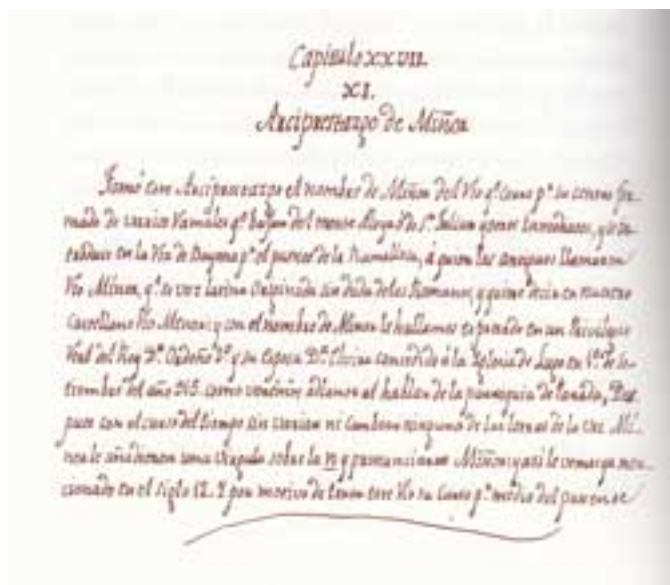 Capitulo XXVII.
XI.
Arciprestazgo de Miñor
Tomó este Arciprestazgo el nombre de Miñor del Rio qᵉ corre pʳ su centro for-
mado de varios Ramales qᵉ bajan del monte Aloya de Sⁿ Julian y otros inmediatos, y se in-
troduce en la Ria de Bayona pʳ el puente de la Ramallosa, á quien los antiguos llamaron
Rio Minor, qᵉ es voz latina sin duda de los Romanos, y quiere decir en nuestro
Castellano Rio Menor: y con el nombre de Minor le hallamos en un Privilegio
Real del Rey Dⁿ Ordoño 2º y su Esposa Dª Elvira concedido á la Iglesia de Lugo en 1º de Se-
tiembre del año 915. como veremos al hablar de la parroquia de Panxón, Des-
pues con el curso del tiempo sin variar ni cambiar ninguna de las letras de la voz Mi-
nor le añadieron una virgula sobre la n y pronunciaron Miñor: y asi le vemos ya men-
cionado en el siglo 12. Y por motivo de tener este Rio su curso pʳ medio del puente